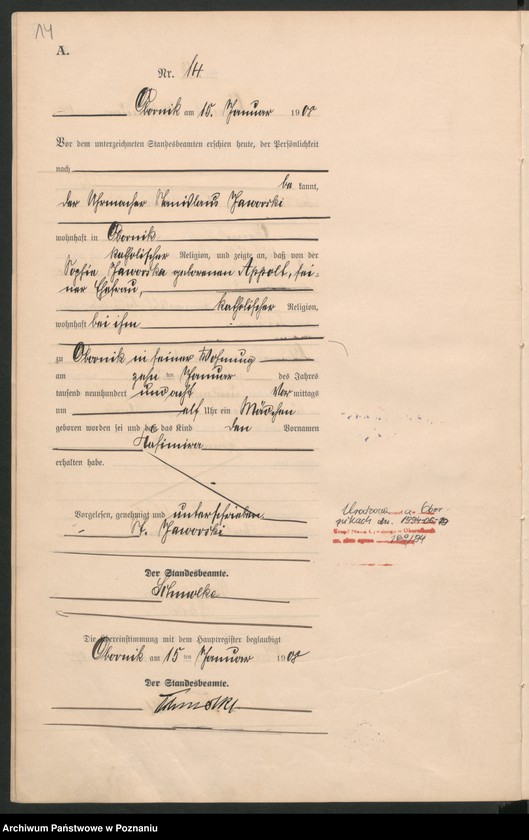 14
A.
Nr. 14
Obornik am 15. Januar 1908
Vor dem unterzeichneten Standesbeamten erschien heute, der Persönlichkeit
nach
be kannt,
der Uhrmacher Stanislaus Jaworski
wohnhaft in Obornik
katholischer Religion, und zeigte an, daß von der
Sophie Jaworska geborenen Appolt, sei-
ner Ehefrau,
katholischer Religion,
wohnhaft bei ihm
zu Obornik in seiner Wohnung
am zehn ten Januar des Jahres
tausend neunhundert und acht Vor mittags
um elf Uhr ein Mädchen
geboren worden sei und daß das Kind den Vornamen
Kasimira
erhalten habe.
Vorgelesen, genehmigt und unterschrieben
St. Jaworski
Der Standesbeamte.
Schmolke
Die Übereinstimmung mit dem Hauptregister beglaubigt
Obornik am 15 ten Januar 1908
Der Standesbeamte.
Schmolke
Archiwum Państwowe w Poznaniu